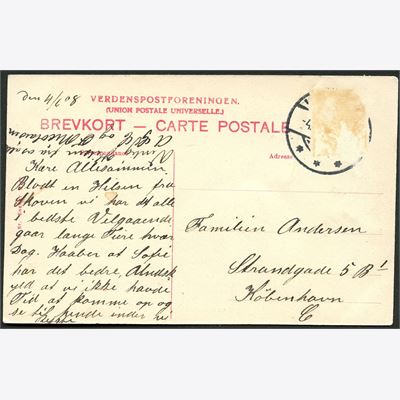 den 4/6 08
VERDENSPOSTFORENINGEN.
(UNION POSTALE UNIVERSELLE.)
BREVKORT — CARTE POSTALE
Adresse
Kære Allesammen
Blodt en Hilsen fra
Skoven vi har det alle
i bedste Velgaaende
gaar lange Ture hver
Dag. Haaber at Sofie
har det bedre,
at vi ikke havde
Tid at komme op og
se til hende inden vi
rejste
Familien Andersen
Strandgade 5 B¹
København
C